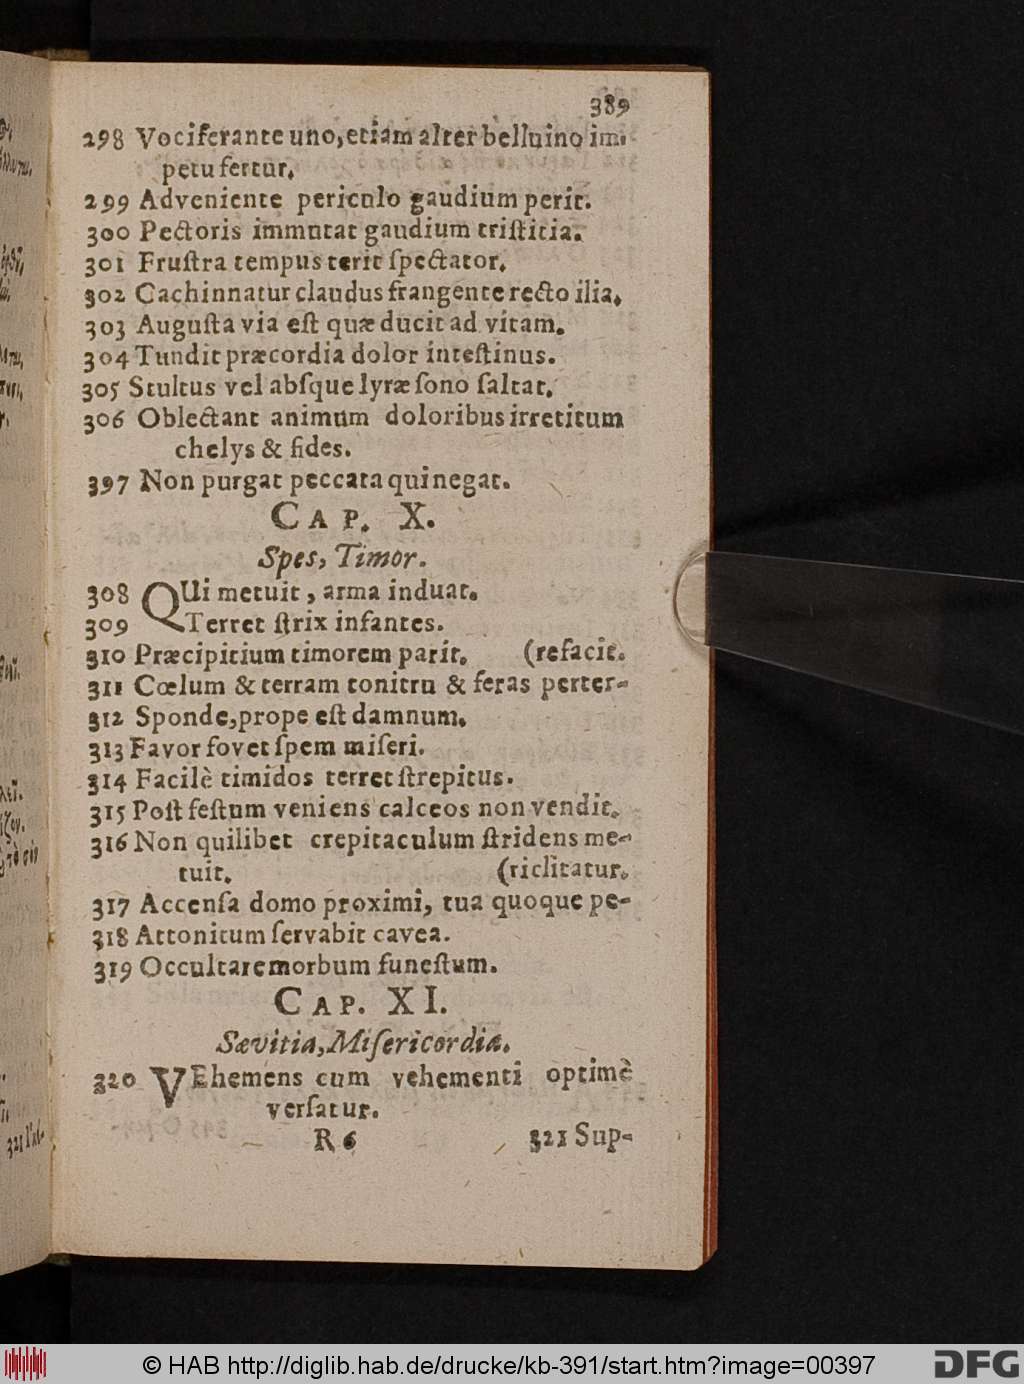 389
298 Vociferante uno, etiam alter belluino im-
petu fertur.
299 Adveniente periculo gaudium perit.
300 Pectoris immutat gaudium triſtitia.
301 Fruſtra tempus terit ſpectator.
302 Cachinnatur claudus frangente recto ilia.
303 Auguſta via eſt quæ ducit ad vitam.
304 Tundit præcordia dolor inteſtinus.
305 Stultus vel abſque lyræ ſono ſaltat.
306 Oblectant animum doloribus irretitum
chelys & fides.
397 Non purgat peccata qui negat.
CAP. X.
Spes, Timor.
308 QUi metuit, arma induat.
309 Terret ſtrix infantes.
310 Præcipitium timorem parit. (refacit.
311 Cœlum & terram tonitru & feras perter-
312 Sponde, prope eſt damnum.
313 Favor fovet ſpem miſeri.
314 Facilè timidos terret ſtrepitus.
315 Poſt feſtum veniens calceos non vendit.
316 Non quilibet crepitaculum ſtridens me-
tuit. (riclitatur.
317 Accenſa domo proximi, tua quoque pe-
318 Attonitum ſervabit cavea.
319 Occultare morbum funeſtum.
CAP. XI.
Sævitia, Miſericordia.
320 VEhemens cum vehementi optimè
verſatur.
R 6 321 Sup-
© HAB http://diglib.hab.de/drucke/kb-391/start.htm?image=00397
DFG